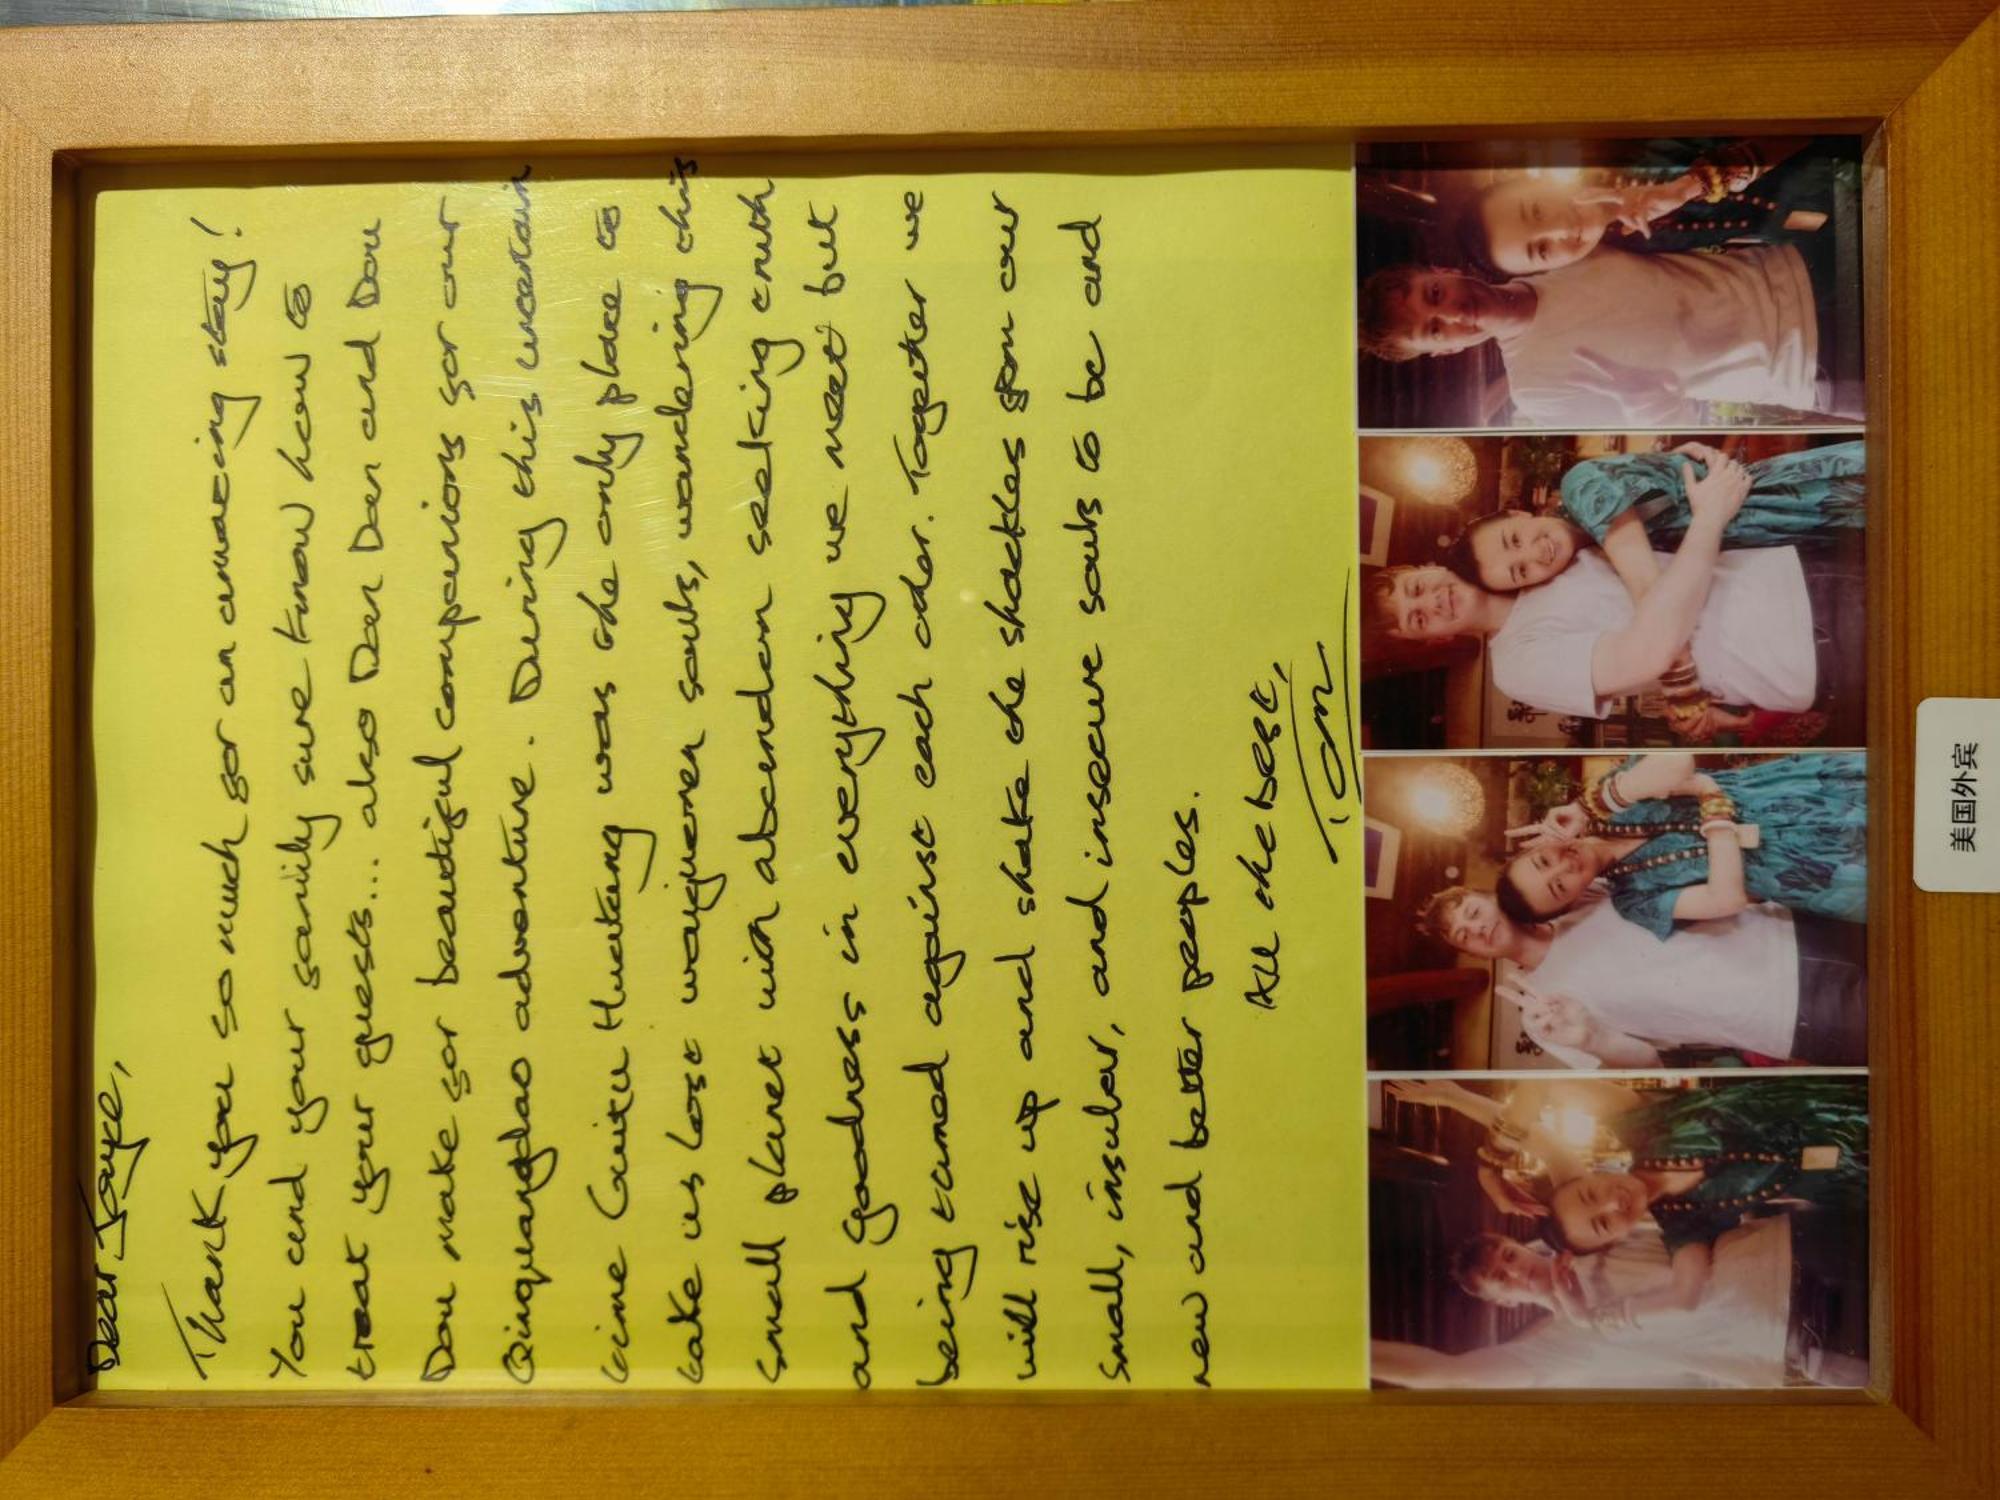 Dear Joyce,
Thank you so much for an amazing stay!
You and your family sure know how to
treat your guests... also Dan Dan and Dou
Dou make for beautiful companions for our
Qinquangdao adventure. During this uncertain
time Guitu Hutong was the only place to
take us lost wayguerer souls, wandering this
small planet with abandon seeking truth
and goodness in everything we meet but
being turned against each other. Together we
will rise up and shake the shackles from our
small, insular, and insecure souls to be and
new and better peoples.
All the best,
Tom
美国外宾